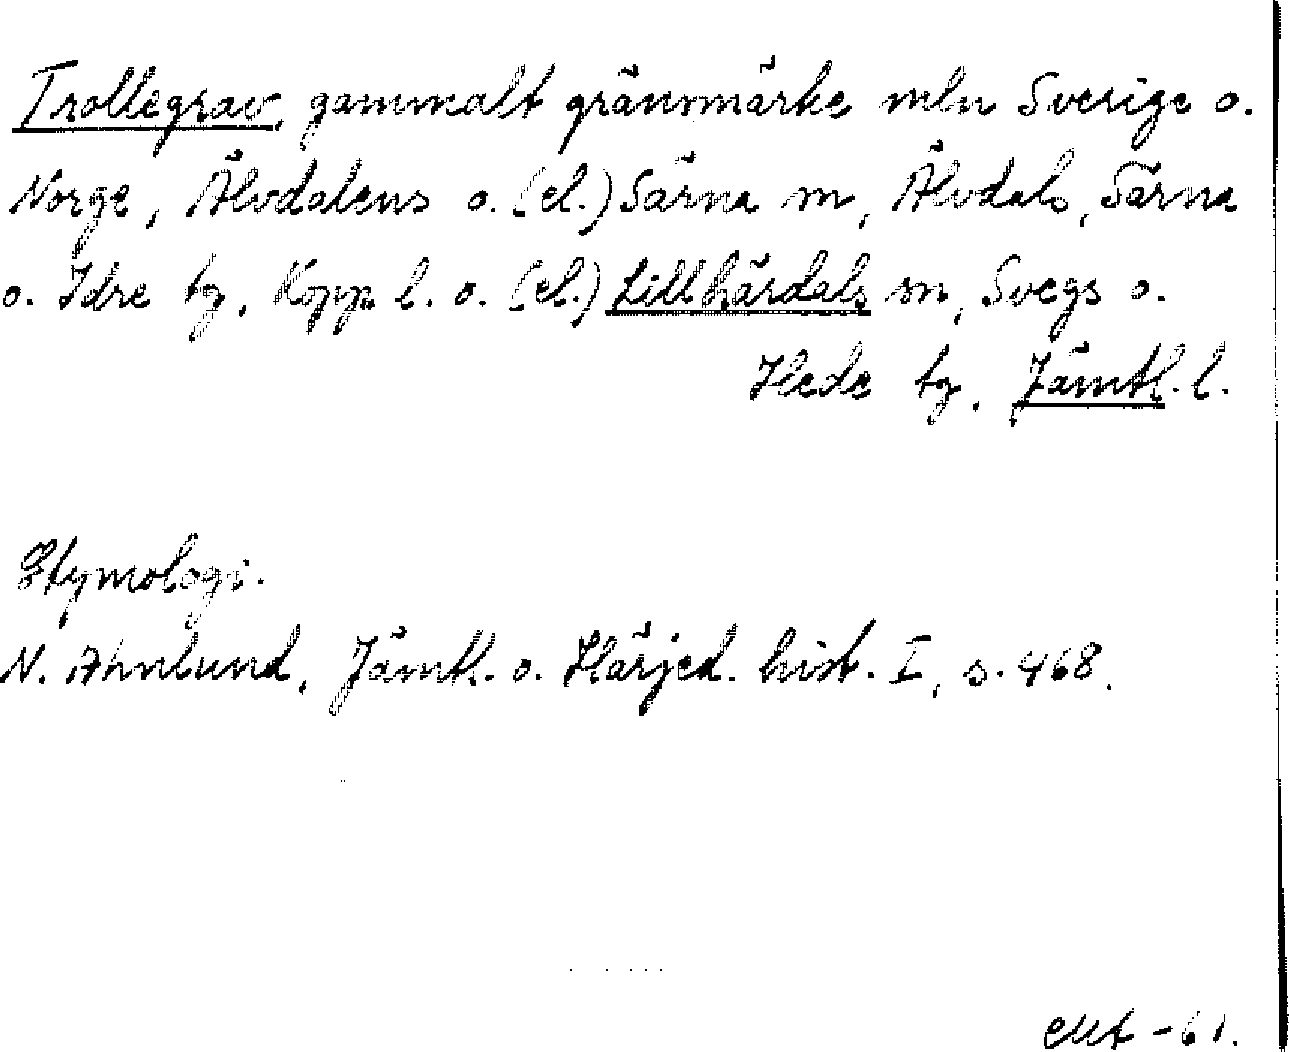 Trollegrav, gammalt gränsmärke mln Sverige o.
Norge, Älvdalens o. (el.) Särna sn, Älvdals, Särna
o. Idre tg, Kopp. l. o. (el.) Lillhärdals sn, Svegs o.
Hede tg, Jämtl. l.
Etymologi.
N. Ahnlund, Jämtl. o. Härjed. hist. I, s. 468.
-61.